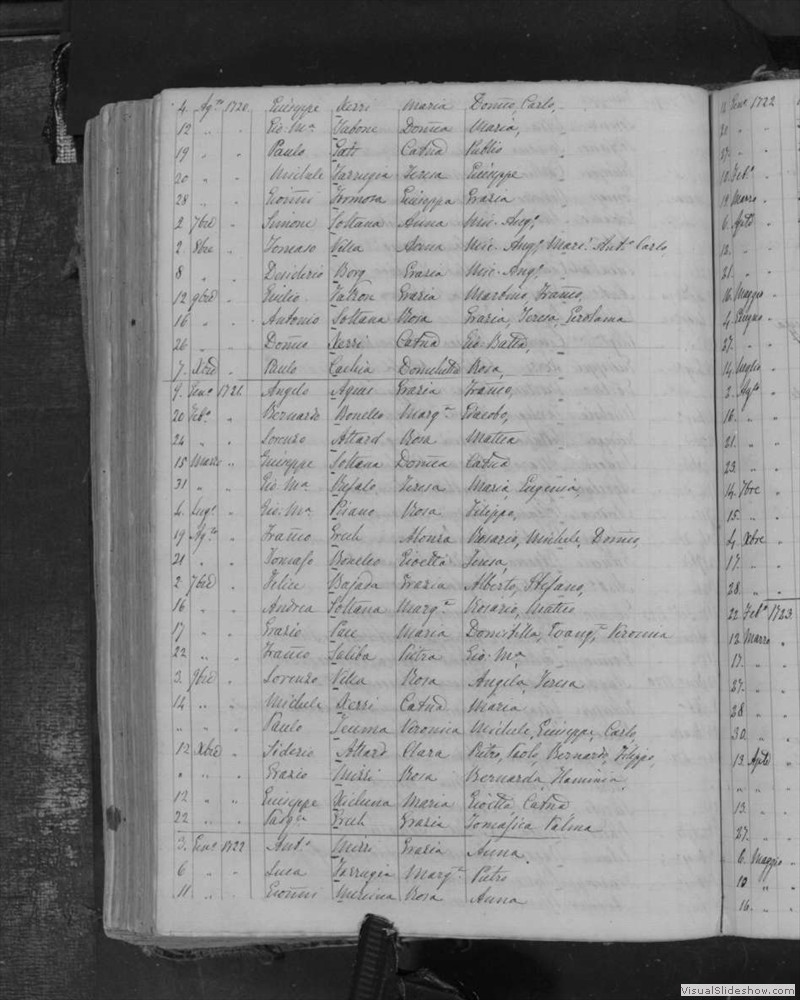 4. Ag.to 1720. Giuseppe Xerri Maria Dom.co Carlo,
12 " " Gio. M.a Tabone Dom.ca Maria,
19 " " Paulo Gatt Cat.na Publio
20 " " Michele Farrugia Teresa Giuseppe
28 " " Gio'nni Formosa Giuseppa Grazia
2 7bre " Simone Soltana Anna Mic. Ang.o
2 8bre " Tomaso Villa Anna Mic. Ang.o Mari. Ant.o Carlo,
8 " " Desiderio Borg Grazia Mic. Ang.o
12 9bre " Giulio Fatron Grazia Martino, Fran'co,
16 " " Antonio Soltana Rosa Grazia, Teresa, Gerolama
26 " " Dom'co Xerri Cat'na Gio: Batta,
7. Xbre " Paulo Cachia Rosa,
9. Gen.o 1721. Angelo Agius Grazia Fran'co,
20 Feb.o " Bernardo Bonello Marg.ta Giacobo,
24 " " Lorenzo Attard Rosa Mattea
15 Marzo " Giuseppe Soltana Dom'ca Cat'na
31 " " Gio. M.a Refalo Teresa Maria, Eugenia,
4. Lug.o " Gio. M.a Pisano Rosa Filippo,
19 Ag.to " Fran'co Grech Alonza Rosario, Michele, Dom'co,
21 " " Tomaso Bonello Gioetta Teresa,
2 7bre " Felice Bajada Grazia Alberto, Stefano,
16 " " Andrea Soltana Marg.ta Rosario, Matteo
17 " " Grazio Pace Maria Domitilla, Evang.ta Veronia
22 " " Fran'co Saliba Pietra Gio: M.a
3. 9bre " Lorenzo Villa Rosa Angela, Teresa
14 " " Michele Xerri Cat'na Maria
" " " Paulo Teuma Veronica Michele, Giuseppe, Carlo,
12 Xbre " Siderio Attard Clara Pietro, Paolo, Bernardo, Filippo,
" " " Grazio Mizzi Rosa Bernarda, Flaminia
12 " " Giuseppe Xicluna Maria Gioetta Cat'na
22 " " Pasq.e Grech Grazia Tomasica Palma
3. Gen.o 1722 Ant.o Mizzi Grazia Anna
6 " " Luca Farrugia Marg.ta Pietro
11 " " Gio'nni Mercieca Rosa Anna
11 Gen.o 1722
21 " "
27. " "
18 Feb.o
19 Marzo "
6. Ap.le "
12. " "
21. " "
16. Maggio "
4. Giugno "
27. " "
14. Luglio "
2. Ag.to "
16. " "
21. " "
23. " "
14. 7bre "
15. " "
4. Xbre "
17. " "
28. " "
22. Feb.o 1723.
12 Marzo "
17. " "
27. " "
28 " "
30. " "
13. Ap.le "
" " "
13. " "
27. " "
6. Maggio "
10. " "
16. " "
VisualSlideshow.com